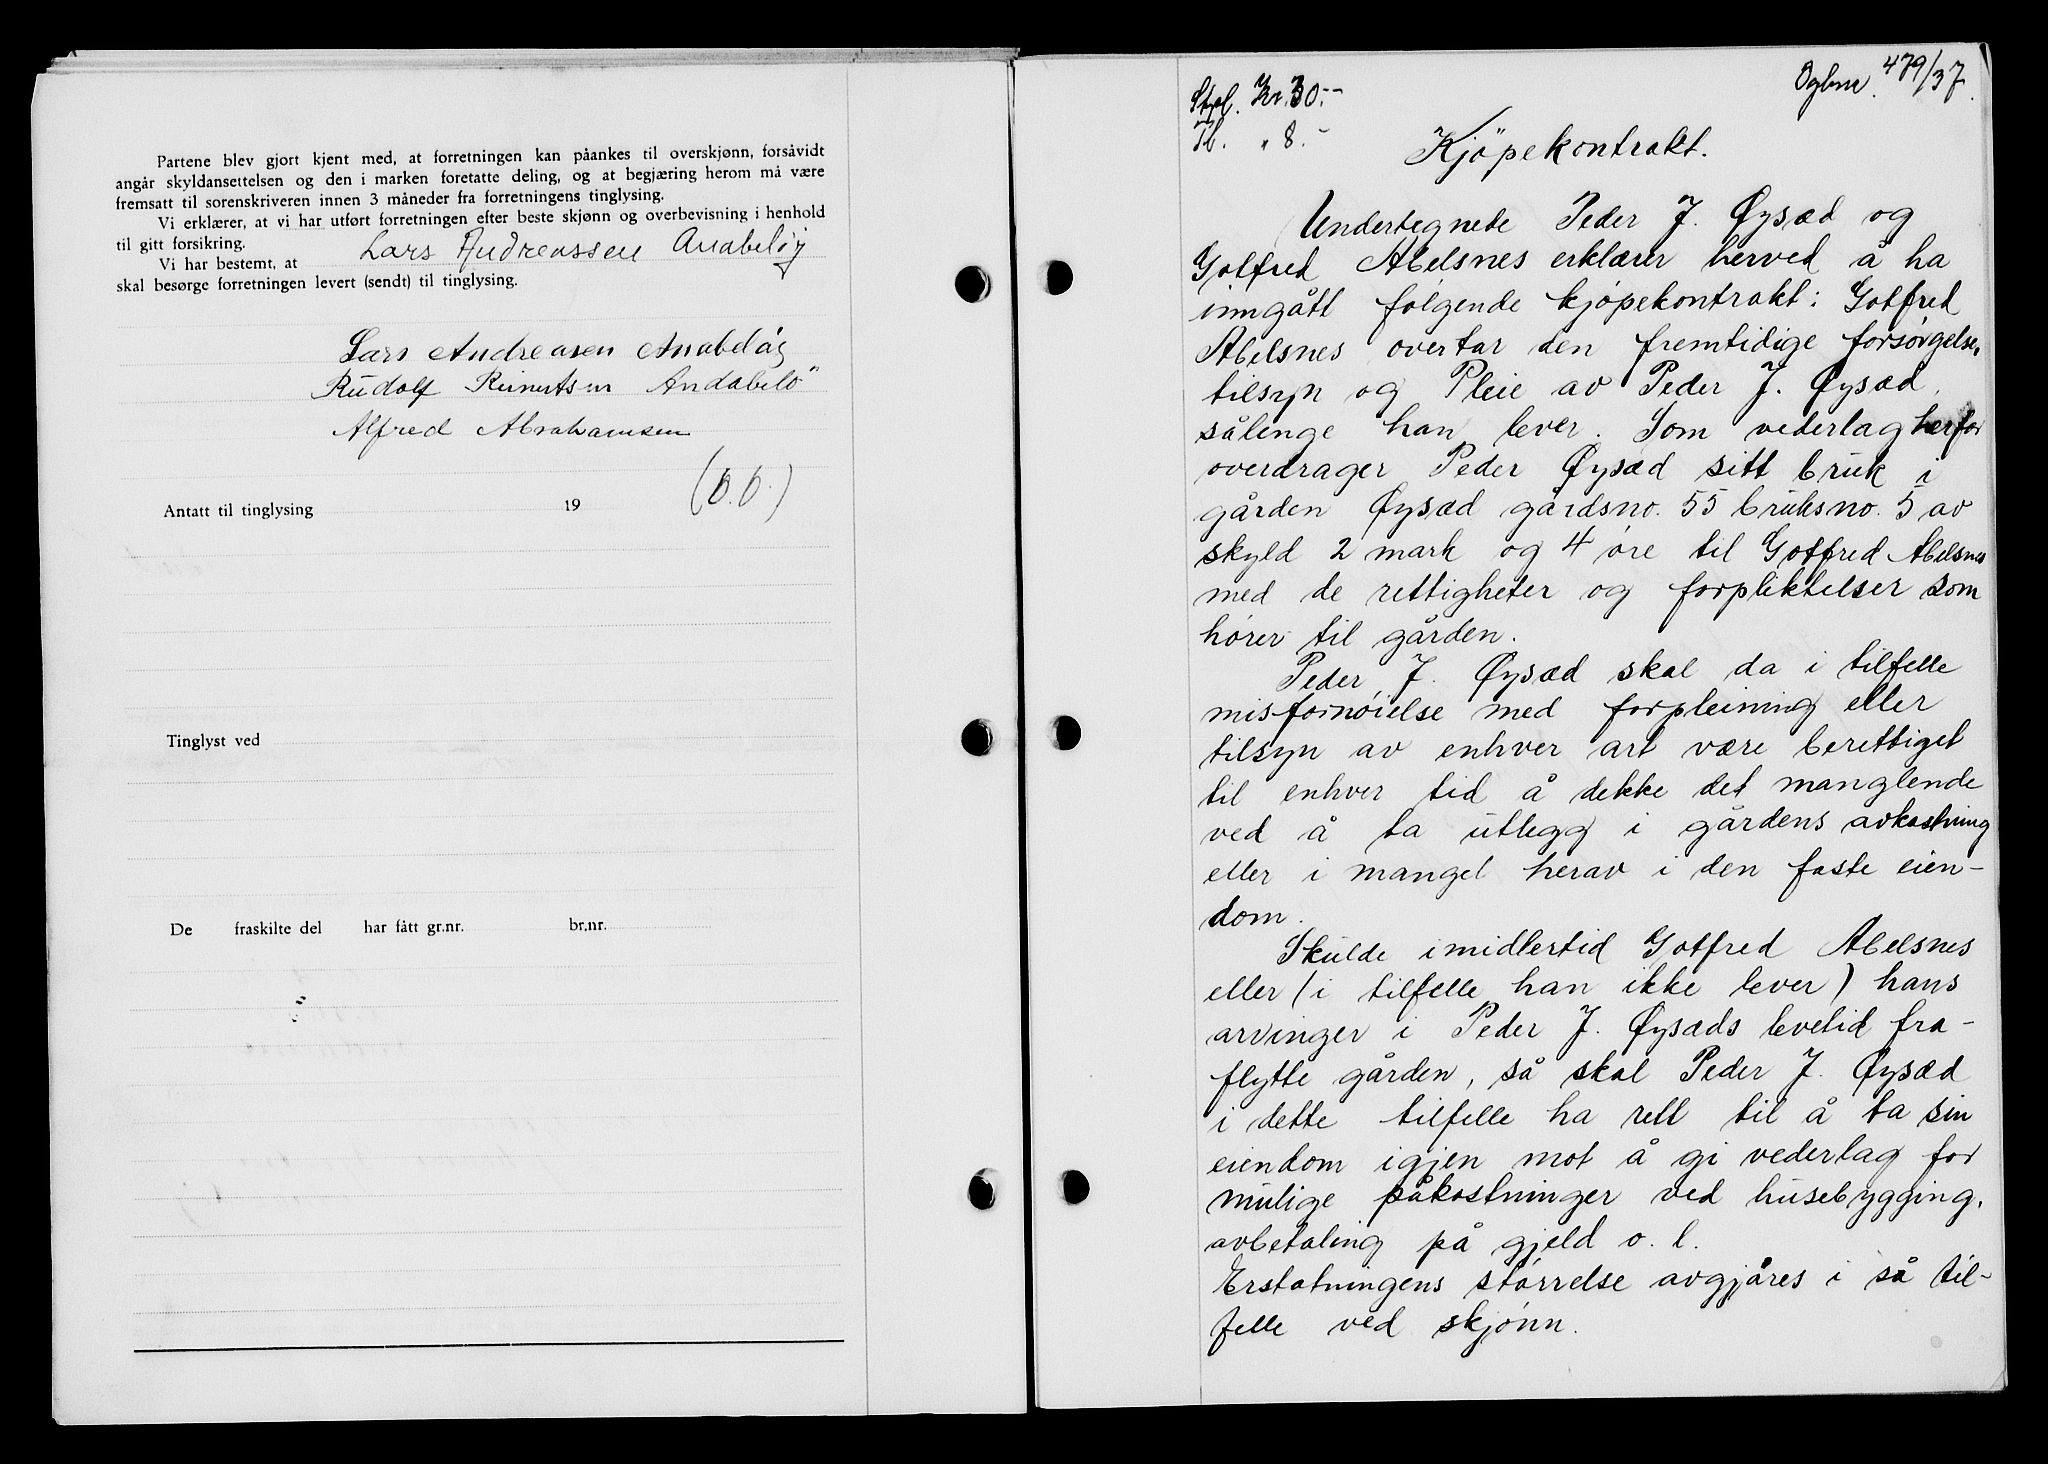 Partene blev gjort kjent med, at forretningen kan påankes til overskjønn, forsåvidt
angår skyldansettelsen og den i marken foretatte deling, og at begjæring herom må være
fremsatt til sorenskriveren innen 3 måneder fra forretningens tinglysing.
Vi erklærer, at vi har utført forretningen efter beste skjønn og overbevisning i henhold
til gitt forsikring.
Vi har bestemt, at Lars Andreassen Anabeløy
skal besørge forretningen levert (sendt) til tinglysing.
Lars Andreasen Anabeløy
Rudolf Reinertsen Andabelö
Alfred Abrahamsen
Antatt til tinglysing 19
Tinglyst ved
De fraskilte del har fått gr.nr. br.nr.
Dagbnr. 479/37.
Stpl. Kr. 30.--
Tl. " 8.-
Kjöpekontrakt.
Undertegnede Peder J. Øysæd og
Gotfred Abelsnes erklærer herved å ha
inngått følgende kjøpekontrakt: Gotfred
Abelsnes overtar den fremtidige forsørgelse,
tilsyn og Pleie av Peder J. Øysæd,
sålenge han lever. Som vederlag herfor
overdrager Peder Øysæd sitt bruk i
gården Øysæd gårdsno. 55 bruksno. 5 av
skyld 2 mark og 4 øre til Gotfred Abelsnes
med de rettigheter og forpliktelser som
hører til gården.
Peder J. Øysæd skal da i tilfelle
misfornøielse med forpleining eller
tilsyn av enhver art være berettiget
til enhver tid å dekke det manglende
ved å ta utlegg i gårdens avkastning
eller i mangel herav i den faste eien-
dom.
Skulde imidlertid Gotfred Abelsnes
eller (i tilfelle han ikke lever) hans
arvinger i Peder J. Øysæds levetid fra-
flytte gården, så skal Peder J. Øysæd
i dette tilfelle ha rett til å ta sin
eiendom igjen mot å gi vederlag for
mulige påkostninger ved husebygging,
avbetaling på gjeld o. l.
Erstatningens størrelse avgjøres i så til-
felle ved skjønn.